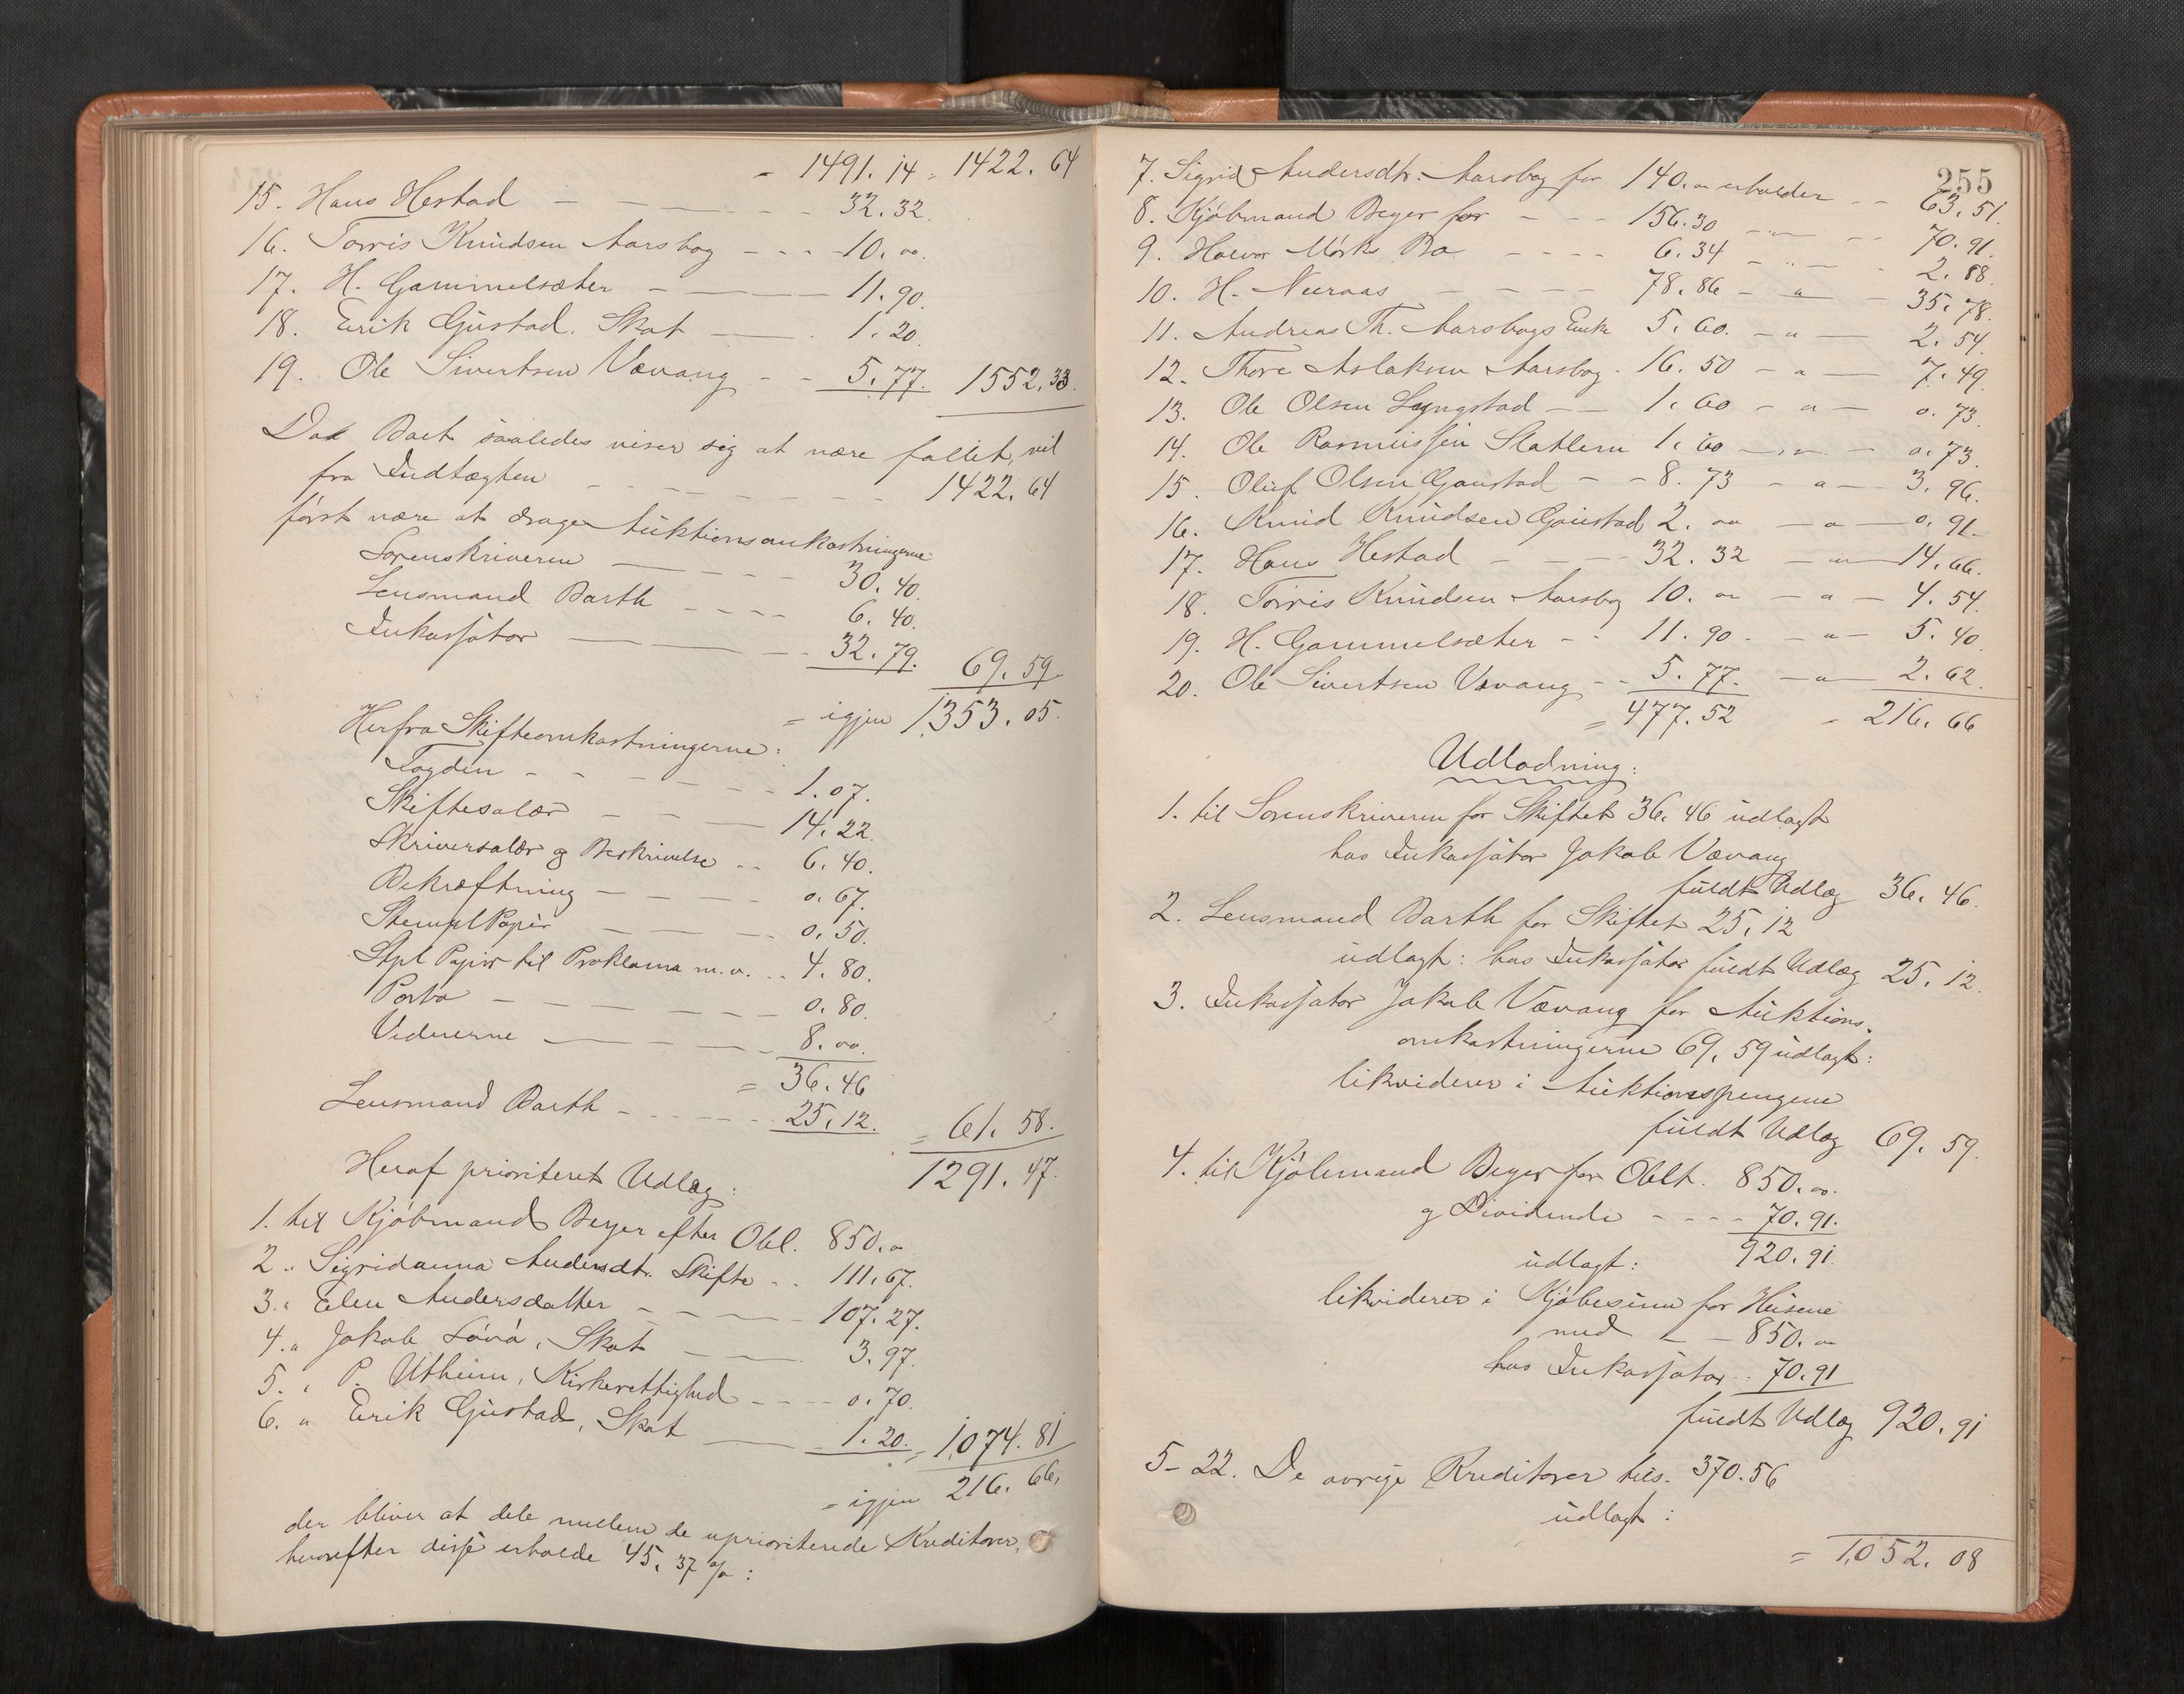 = 1491.14 = 1422.64
15. Hans Hestad - - - - 32.32.
16. Torris Knudsen Aarsbog - - - 10.00.
17. H. Gammelsæter - - - 11.90.
18. Erik Gustad. Skat - - 1.20.
19. Ole Sivertsen Vevang - - 5.77. 1552.33.
Da Boet saaledes viser sig at være fallit, vil
fra Indtægten - - - - - 1422.64
først være at drage Auktionsomkostningerne
Sorenskriveren - - - 30.40.
Lensmand Barth - - - - 6.40.
Inkassator - - - 32.79. 69.59.
= igjen 1353.05.
Herfra Skifteomkostningerne:
Fogden - - - - - - 1.07.
Skiftesalær - - - 14.22.
Skriversalær og Beskrivelse - - 6.40.
Bekræftning - - - - 0.67.
Stempl Papir - - - 0.50.
Stpl Papir til Proklama m.v. - - 4.80.
Porto - - - - - - 0.80.
Vidnerne - - - - 8.00.
= 36.46
Lensmand Barth - - - - - 25.12. = 61.58.
1291.47.
Heraf prioriteret Udlæg:
1. til Kjøbmand Beyer efter Obl. 850.00
2. " Sigridanna Andersdtr. Skifte - - 111.67.
3. " Elen Andersdatter - - - - 107.27.
4. " Jakob Løvø, Skat - - 3.97.
5. " P. Utheim, Kirkerettighed - - - - 0.70.
6. " Erik Gustad, Skat - - 1.20. = 1074.81
= igjen 216.66.
der bliver at dele mellem de uprioriterede Kreditorer,
hvorefter disse erholde 45.37 %:
255
7. Sigrid Andersdtr. Aarsbog for 140.00 erholder - - 63.51.
8. Kjøbmand Beyer for - - - 156.30 - " - - 70.91.
9. Halvor Mørks Bo - - - - 6.34 - " - - 2.88.
10. H. Neraas - - - - 78.86 - " - - 35.78.
11. Andreas Th. Aarsbogs Enke 5.60. - " - 2.54.
12. Thore Aslaksen Aarsbog - 16.50 - " - 7.49.
13. Ole Olsen Lyngstad - - 1.60 - " - 0.73.
14. Ole Rasmussen Slatlem 1.60 - " - 0.73.
15. Oluf Olsen Gaustad - - 8.73 - " - 3.96.
16. Knud Knudsen Gaustad 2.00 - " - 0.91.
17. Hans Hestad - - - 32.32 - " - 14.66.
18. Torris Knudsen Aarsbog 10.00 - " - 4.54.
19. H. Gammelsæter - - 11.90 - - " - 5.40.
20. Ole Sivertsen Vevang - - 5.77. - " - 2.62.
= 477.52 = 216.66
Udlodning:
1. til Sorenskriveren for Skiftet 36.46 udlagt
hos Inkassator Jakob Vevang
fuldt Udlæg 36.46.
2. Lensmand Barth for Skiftet 25.12
udlagt: hos Inkassator fuldt Udlæg 25.12.
3. Inkassator Jakob Vevang for Auktions-
omkostningerne 69.59 udlagt:
likviderer i Auktionspengene
fuldt Udlæg 69.59.
4. til Kjøbmand Beyer for Oblt. 850.00.
og Dividende - - - - 70.91.
udlagt: 920.91.
likviderer i Kjøbesum for Husene
med - - 850.00
hos Inkassator - - 70.91
fuldt Udlæg 920.91
5-22. De øvrige Kreditorer tils. 370.56
udlagt:
= 1052.08